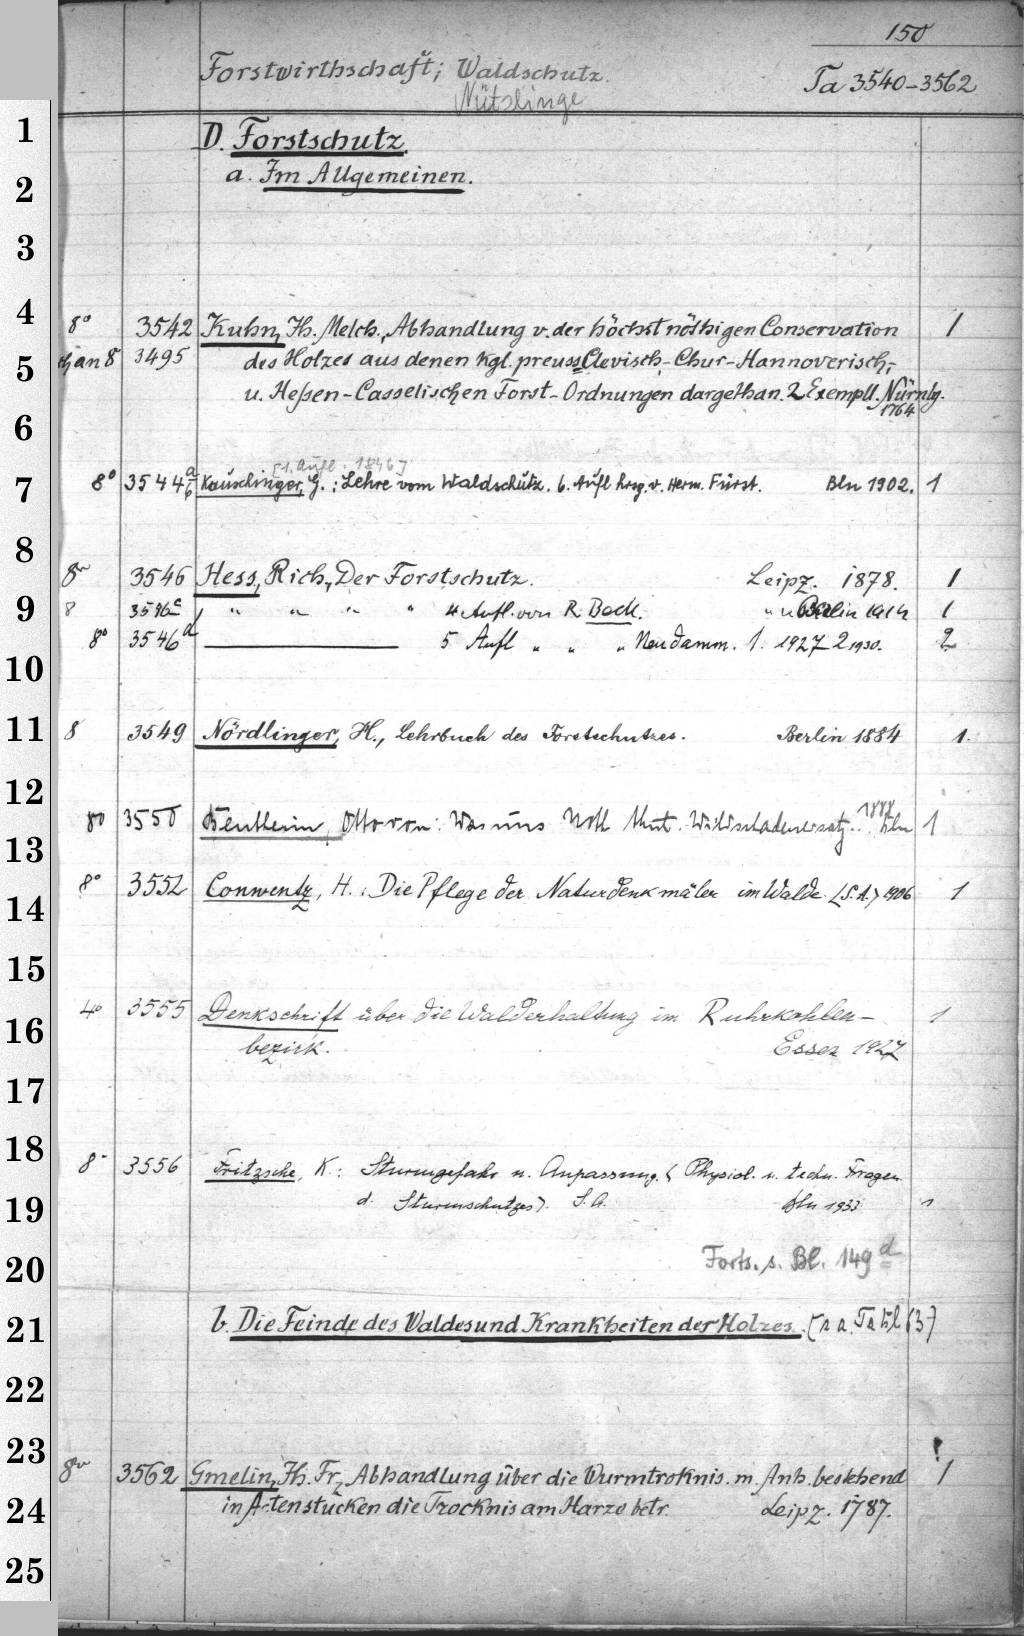 150
Forstwirthschaft; Waldschutz.
Ta 3540-3562
Nützlinge
1
D. Forstschutz.
2
a. Im Allgemeinen.
3
4
8° 3542 Kuhn, Th. Melch., Abhandlung v. der höchst nöthigen Conservation 1
5
an 8 3495 des Holzes aus denen Kgl. preuss Clevisch-Chur-Hannoverisch-,
u. Heßen-Casselischen Forst-Ordnungen dargethan. 2 Exempll. Nürnbg.
1764
6
[1. Aufl. 1846]
7
8° 3544 a b Kauschinger, G.: Lehre vom Waldschutz. 6. Aufl hrsg. v. Herm. Fürst. Bln 1902. 1
8
8° 3546 Hess, Rich., Der Forstschutz. Leipz. 1878. 1
9
8 3546c , " " " " 4. Aufl. von R. Beck. " u Berlin 1914 1
8° 3546d 5 Aufl " " " Neudamm. 1. 1927 2 1930. 2
10
11
8 3549 Nördlinger, H., Lehrbuch des Forstschutzes. Berlin 1884 1.
12
8° 3550 Bentheim, Otto von: Was uns Noth thut. Wildschadenersatz. 1888 Bln 1
13
8° 3552 Conwentz, H.: Die Pflege der Naturdenkmäler im Walde. (S.A.) 1906 1
14
15
4° 3555 Denkschrift über die Walderhaltung im Ruhrkohlen- 1
16
bezirk. Essen 1927
17
18
8° 3556 Fritzsche, K.: Sturmgefahr u. Anpassung. (Physiol. u. techn. Fragen
19
d. Sturmschutzes). S.A. Bln 1933 1
20
Forts. s. Bl. 149 d
21
b. Die Feinde des Waldes und Krankheiten der Holzes. (s. a. Ta
22
23
8° 3562 Gmelin, Th. Fr., Abhandlung über die Wurmtroknis. m. Anh. bestehend 1
24
in Actenstücken die Trocknis am Harze betr. Leipz. 1787.
25